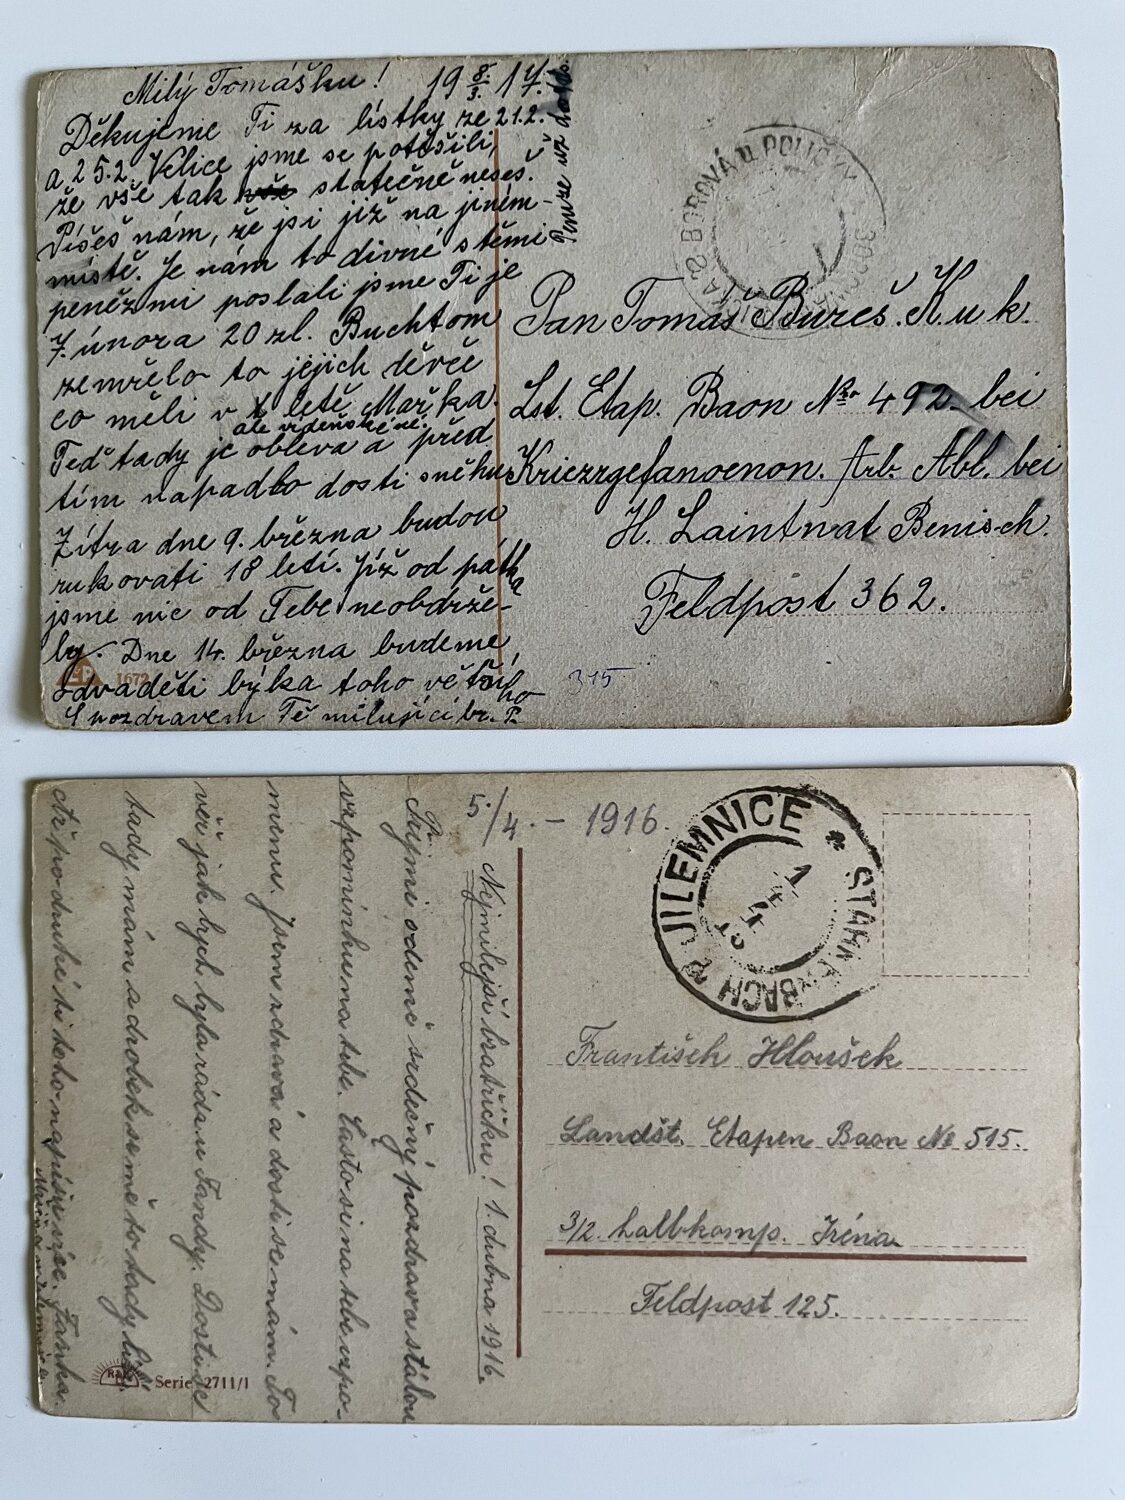 Milý Tomášku! 19 8/3. 17.
Děkujeme Ti za lístky ze 21.2.
a 25.2. Velice jsme se potěšili,
že vše tak vše statečně neseš.
Píšeš nám, že jsi již na jiném
místě. Je nám to divné s těmi
penězmi poslali jsme Ti je
7. února 20 zl. Buchtom
zemřelo to jejich děvče
co měli v letě Mařka.
ale vídeňské ne.
Teď tady je obleva a před
tím napadlo dosti sněhu
Zítra dne 9. března budou
rukovati 18 letí. Již od pátka
jsme nic od Tebe neobdrže-
ly. Dne 14. března budeme
odvaděti býka toho většího
S pozdravem Tě milující br. P.
Peníze už
BOROVÁ U POLIČKY
Pan Tomáš Bureš. K u k.
Lst. Etap. Baon No 492 bei
Kriezrgefanoenon. Arb. Abl. bei
H. Laintnat Benisch.
Feldpost 362.
315
1672
5./4. - 1916.
JILEMNICE * STARKENBACH
Nejmilejší bratříčku! 1. dubna 1916.
Přijmi odemě srdečný pozdrav a stálou
vzpomínku na tebe. Často si na tebe vzpo-
menu. Jsem zdravá a dosti se mám. To
věř jak bych byla ráda u Fandy. Dosti se
tady mám a drobek se mě to tady líbí
až podruhé ti toho napíšu více. Fanka.
František Hloušek
Landšt. Etapen Baon No 515.
3/2. Lalbkomp. Iréna
Feldpost 125.
Serie 2711/1